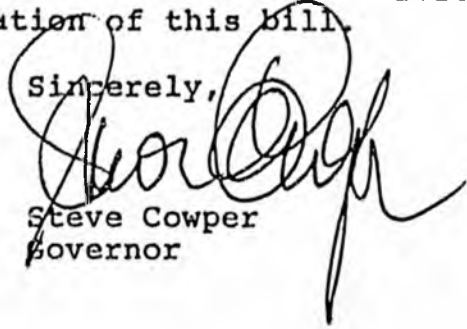 ation of this bill.
Sincerely,
Steve Cowper
Governor